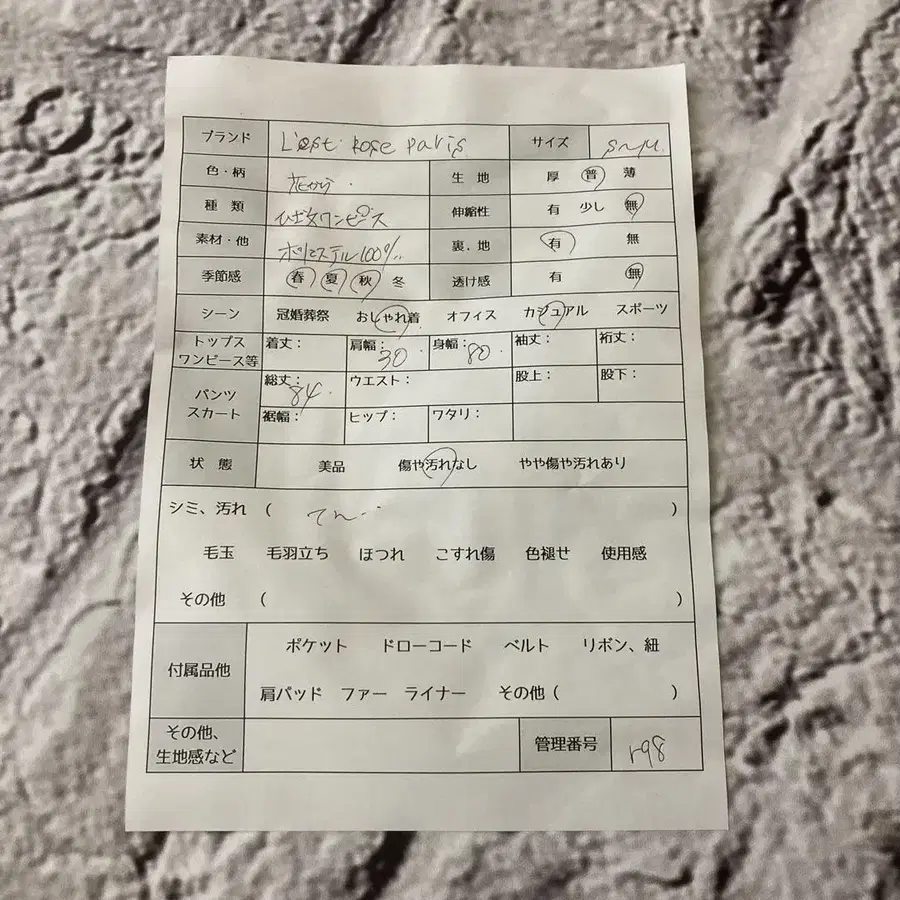 ブランド L'est Rose Paris サイズ S〜M.
色・柄 花がら. 生地 厚 普 薄
種類 ひざ丈ワンピース 伸縮性 有 少し 無
素材・他 ポリエステル100% 裏.地 有 無
季節感 春 夏 秋 冬 透け感 有 無
シーン 冠婚葬祭 おしゃれ着 オフィス カジュアル スポーツ
トップス ワンピース等 着丈: 肩幅: 30. 身幅: 80. 袖丈: 裄丈:
パンツ スカート 総丈: 84. ウエスト: 股上: 股下:
裾幅: ヒップ: ワタリ:
状態 美品 傷や汚れなし やや傷や汚れあり
シミ、汚れ ( )
毛玉 毛羽立ち ほつれ こすれ傷 色褪せ 使用感
その他 ( )
付属品他 ポケット ドローコード ベルト リボン、紐
肩パッド ファー ライナー その他 ( )
その他、
生地感など 管理番号 r98